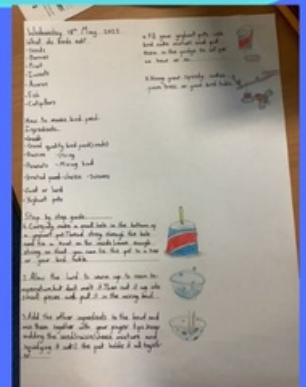 Wednesday 18th May, 2022
What do birds eat...
- Seeds
- Berries
- Fruit
- Insects
- Acorns
- Fish
- Catipillars
How to make bird food
Ingredients...
- Good quality bird food (seeds)
- Raisins - String
- Peanuts - Mixing bowl
- Grated cheese - Scissors
- Suet or lard
- Yoghurt pots
Step by step guide
1. Carefully make a small hole in the bottom of
a yoghurt pot. Thread string through the hole
and tie a knot on the inside. Leave enough
string so that you can tie the pot to a tree
or your bird table.
2. Allow the lard to warm up to room te-
mperature, but don't melt it. Then cut it up into
small pieces and put it in the mixing bowl.
3. Add the other ingredients to the bowl and
mix them together with your finger tips. Keep
adding the seed/raisin/cheese mixture and
squidging it until the fat holds it all togeth-
er
4. Fill your yoghurt pots with
bird cake mixture and put
them in the fridge to set for
an hour or so.
5. Hang your speedy cakes
from trees or your bird table